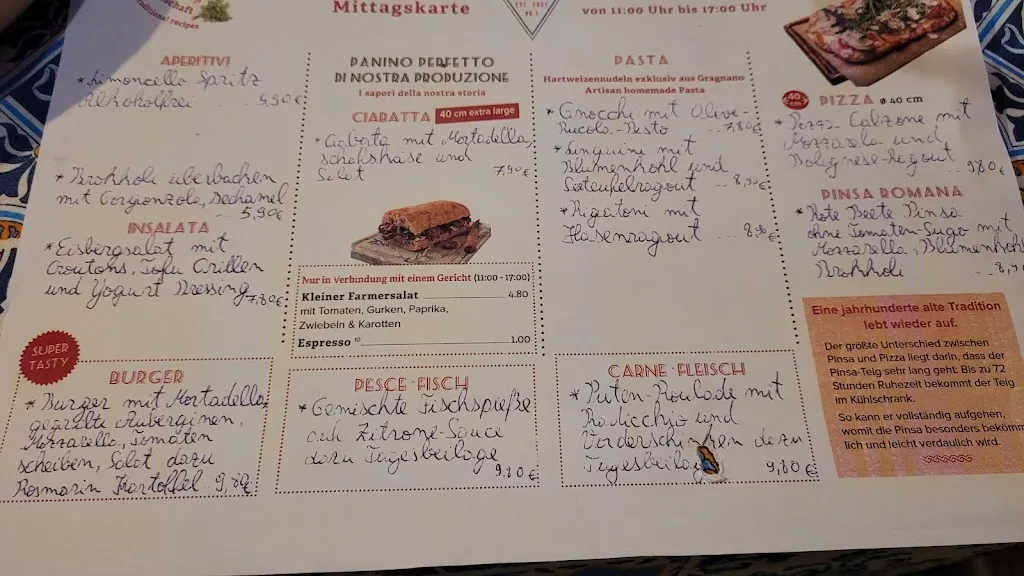 schaft
traditional recipes
Mittagskarte
EST. 2021
von 11:00 Uhr bis 17:00 Uhr
APERITIVI
* Limoncello Spritz
Alkoholfrei 5,90€
* Brokkoli überbacken
mit Gorgonzola, Bechamel
5,90€
INSALATA
* Eisbergsalat mit
Croutons, Tofu Grillen
und Yogurt Dressing 7,80€
SUPER
TASTY
BURGER
* Burger mit Mortadella,
gegrillte Auberginen,
Mozzarella, Tomaten
scheiben, Salat dazu
Rosmarin Kartoffel 9,80€
PANINO PERFETTO
DI NOSTRA PRODUZIONE
I sapori della nostra storia
CIABATTA 40 cm extra large
* Ciabatta mit Mortadella,
Schafskäse und
Salat 7,90€
Nur in Verbindung mit einem Gericht (11:00 - 17:00)
Kleiner Farmersalat 4.80
mit Tomaten, Gurken, Paprika,
Zwiebeln & Karotten
Espresso 10 1.00
PESCE · FISCH
* Gemischte Fischspieße
auf Zitrone-Sauce
dazu Tagesbeilage
9,80€
PASTA
Hartweizennudeln exklusiv aus Gragnano
Artisan homemade Pasta
* Gnocchi mit Olive-
Rucola-Pesto 7,80€
* Linguine mit
Blumenkohl und
Seeteufelragout 8,90€
* Rigatoni mit
Hasenragout 8,90€
CARNE · FLEISCH
* Puten-Roulade mit
Radicchio und
Vorderschinken dazu
Tagesbeilage 9,80€
40 cm
PIZZA ø 40 cm
* Pizza-Calzone mit
Mozzarella und
Bolognese-Ragout
9,80€
PINSA ROMANA
* Rote Beete Pinsa
ohne Tomaten-Sugo mit
Mozzarella, Blumenkohl
Brokkoli 8,90
Eine jahrhunderte alte Tradition
lebt wieder auf.
Der größte Unterschied zwischen
Pinsa und Pizza liegt darin, dass der
Pinsa-Teig sehr lang geht: Bis zu 72
Stunden Ruhezeit bekommt der Teig
im Kühlschrank.
So kann er vollständig aufgehen,
womit die Pinsa besonders bekömm
lich und leicht verdaulich wird.